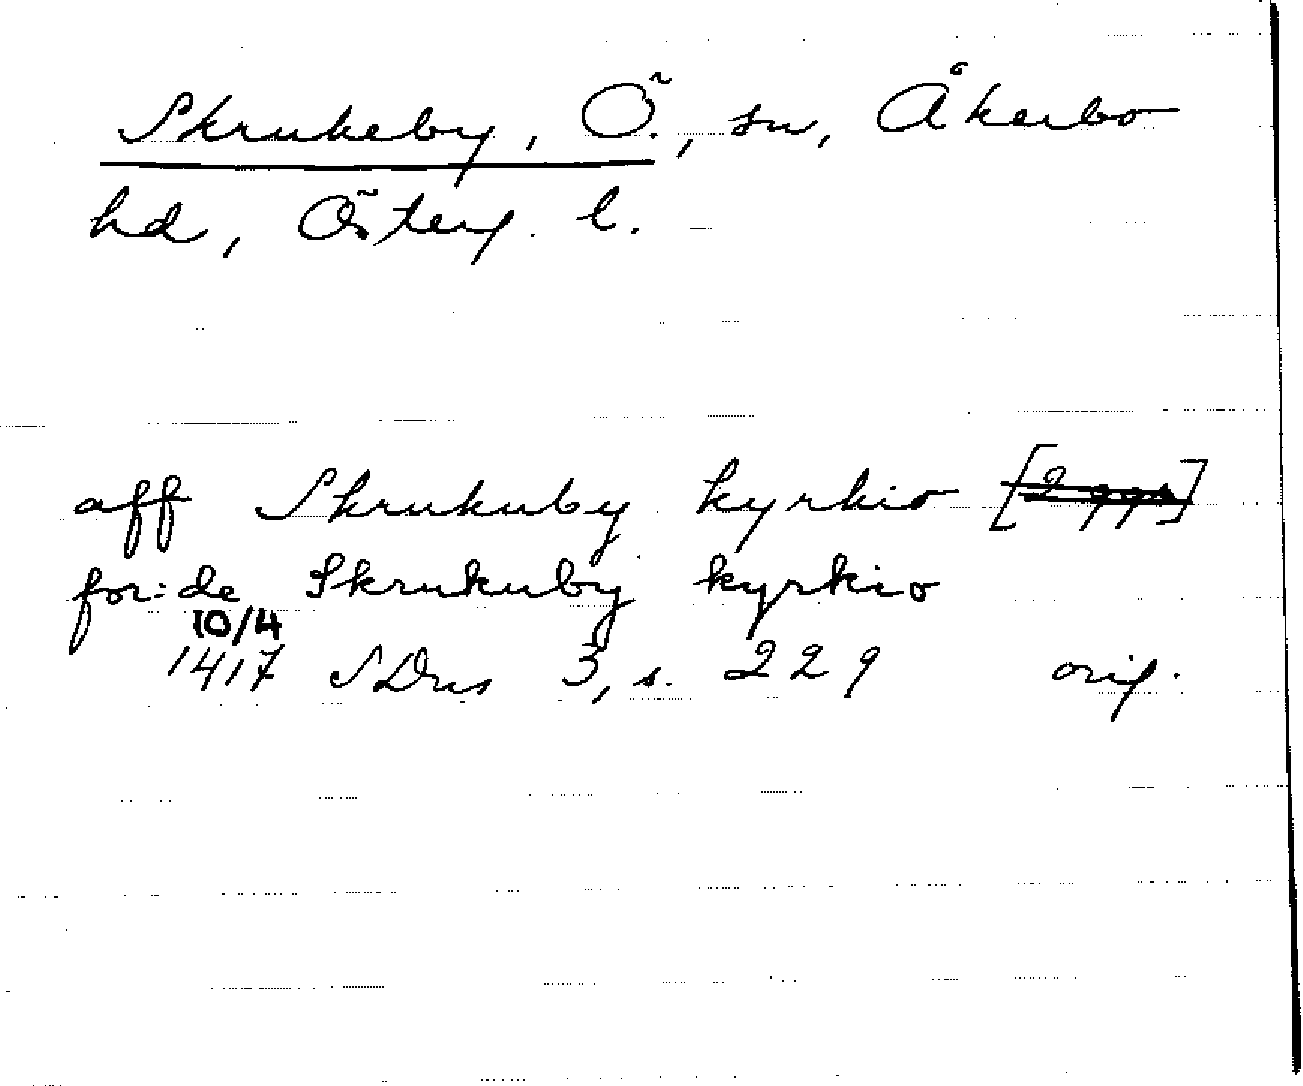 Skrukeby, Ö., sn, Åkerbo
hd, Österg. l.
aff Skrukuby kyrkio [2 ggr]
for:de Skrukuby kyrkio
10/4
1417 SDns 3, s. 229 orig.